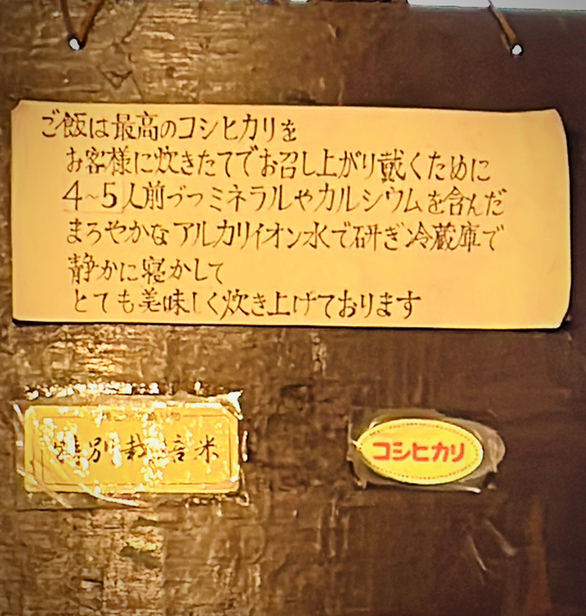 ご飯は最高のコシヒカリを
お客様に炊きたてでお召し上がり戴くために
4~5人前づつミネラルやカルシウムを含んだ
まろやかなアルカリイオン水で研ぎ冷蔵庫で
静かに寝かして
とても美味しく炊き上げております
特別栽培米
コシヒカリ